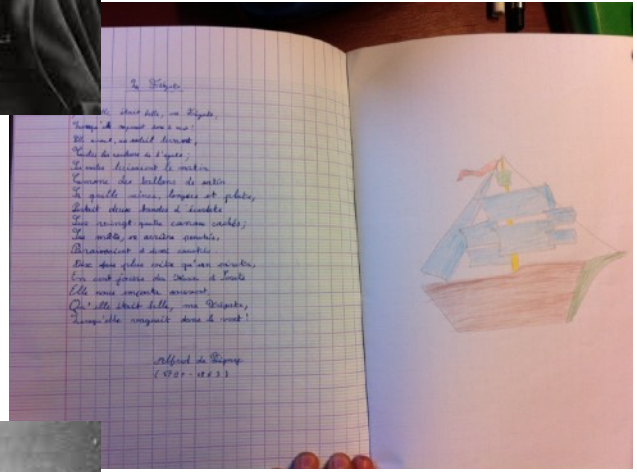 La Frégate
était belle, ma Frégate,
Lorsqu'elle voguait dans le vent !
Elle avait, au soleil levant,
Toutes les couleurs de l'agate ;
Ses voiles luisaient le matin
Comme des ballons de satin
Sa quille mince, longue et plate,
Portait deux bandes d'écarlate
Sur vingt-quatre canons cachés ;
Ses mâts, en arrière penchés,
Paraissaient à demi couchés
Dix fois plus vive qu'un
En cent jours du Havre à
Elle nous emporta souvent,
Qu'elle était belle, ma Frégate,
Lorsqu'elle voguait dans le vent !
Alfred de Vigny